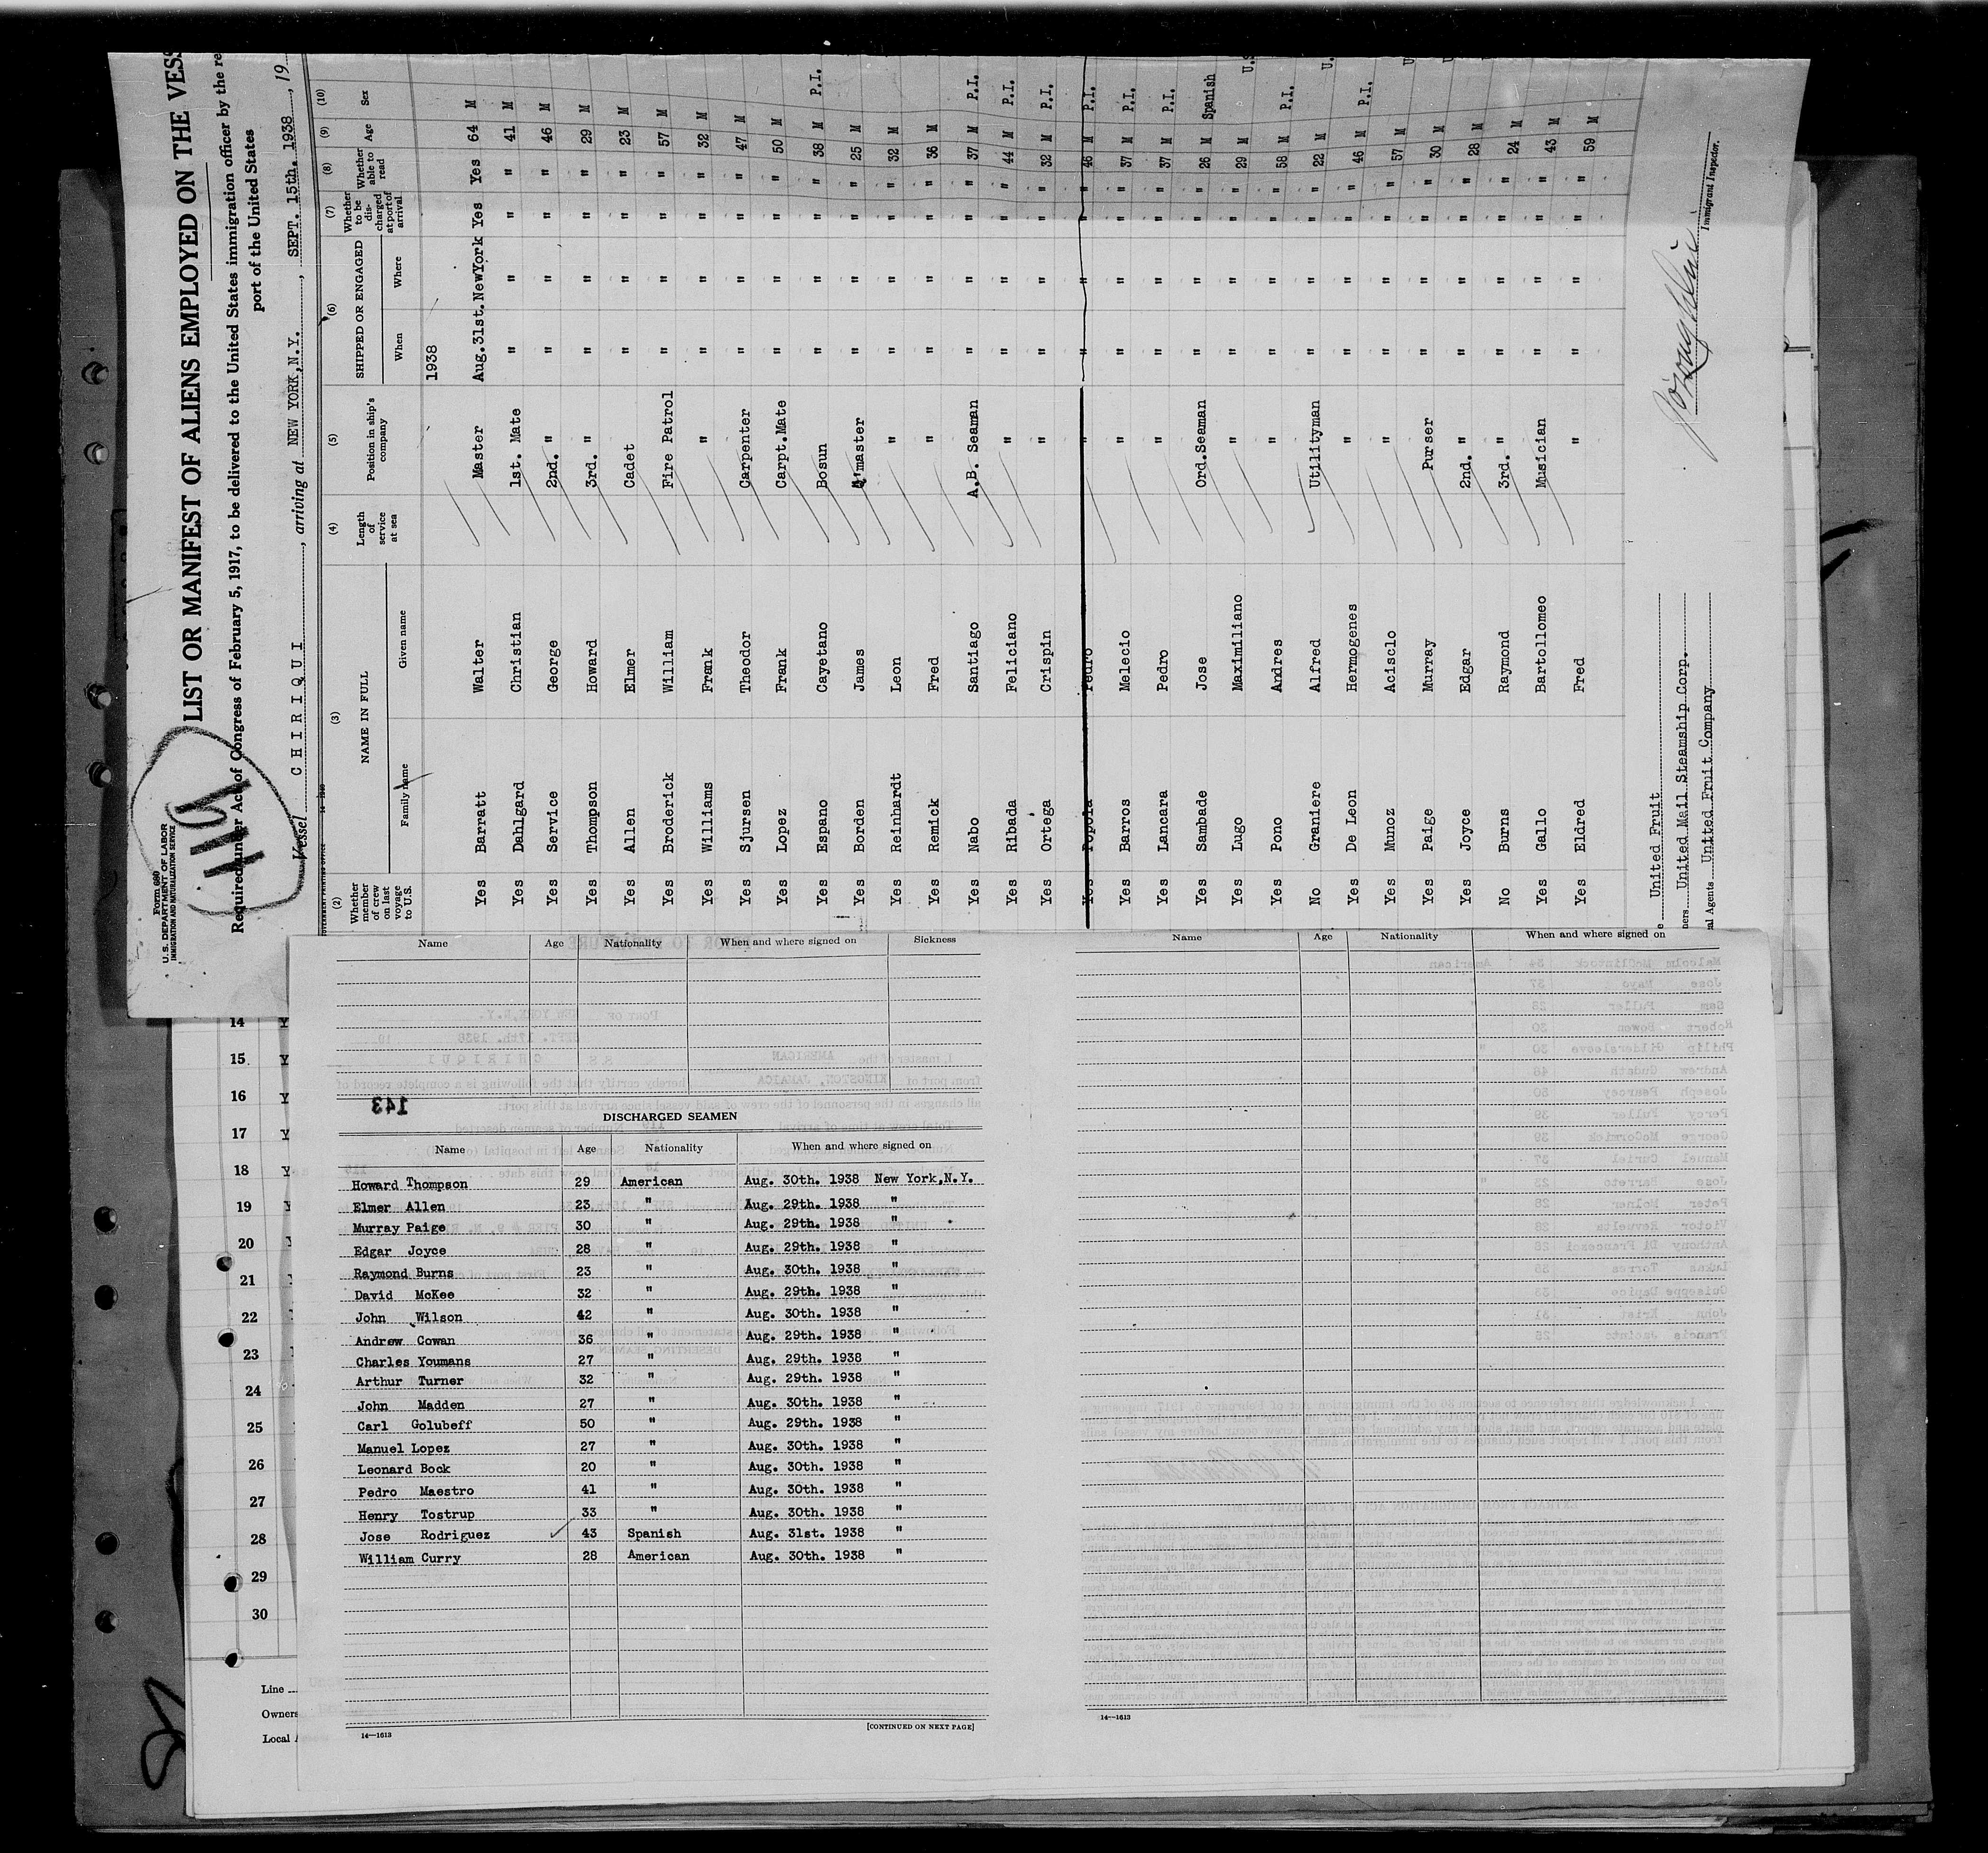 Form 680
U.S. DEPARTMENT OF LABOR
IMMIGRATION AND NATURALIZATION SERVICE
119
LIST OR MANIFEST OF ALIENS EMPLOYED ON THE VESS
Required under Act of Congress of February 5, 1917, to be delivered to the United States immigration officer by the re
port of the United States
Vessel CHIRIQUI, arriving at NEW YORK,N.Y., SEPT. 15th. 1938, 19
(2) (3) (4) (5) (6) (7) (8) (9) (10)
Whether member of crew on last voyage to U.S. NAME IN FULL Length of service at sea Position in ship's company SHIPPED OR ENGAGED Whether to be discharged at port of arrival Whether able to read Age Sex
Family name Given name When Where
1938
Yes Barratt Walter Master Aug.31st. NewYork Yes Yes 64 M
Yes Dahlgard Christian 1st. Mate " " " " 41 M
Yes Service George 2nd. " " " " " 46 M
Yes Thompson Howard 3rd. " " " " " 29 M
Yes Allen Elmer Cadet " " " " 23 M
Yes Broderick William Fire Patrol " " " " 57 M
Yes Williams Frank " " " " " 32 M
Yes Sjursen Theodor Carpenter " " " " 47 M
Yes Lopez Frank Carpt.Mate " " " " 50 M
Yes Espano Cayetano Bosun " " " " 38 M P.I.
Yes Borden James Q'master " " " " 25 M
Yes Reinhardt Leon " " " " " 32 M
Yes Remick Fred " " " " " 36 M
Yes Nabo Santiago A.B. Seaman " " " " 37 M P.I.
Yes Ribada Feliciano " " " " " 44 M P.I.
Yes Ortega Crispin " " " " " 32 M P.I.
Yes Popola Pedro " " " " " 46 M P.I.
Yes Barros Melecio " " " " " 37 M P.I.
Yes Lancara Pedro " " " " " 37 M P.I.
Yes Sambade Jose Ord.Seaman " " " " 26 M Spanish
Yes Lugo Maximiliano " " " " " 29 M U.S
Yes Pono Andres " " " " " 58 M P.I.
No Graniere Alfred Utilityman " " " " 22 M U.
Yes De Leon Hermogenes " " " " " 46 M P.I.
Yes Munoz Acisclo " " " " " 57 M U
Yes Paige Murray Purser " " " " 30 M
Yes Joyce Edgar 2nd. " " " " " 28 M
No Burns Raymond 3rd. " " " " " 24 M
Yes Gallo Bartollomeo Musician " " " " 43 M
Yes Eldred Fred " " " " " 59 M
e United Fruit
ners United Mail Steamship Corp.
al Agents United Fruit Company
Immigrant Inspector.
14
15
16
17
18
19
20
21
22
23
24
25
26
27
28
29
30
Line
Owners
Local
Name Age Nationality When and where signed on Sickness
143
DISCHARGED SEAMEN
Name Age Nationality When and where signed on
Howard Thompson 29 American Aug. 30th. 1938 New York,N.Y.
Elmer Allen 23 " Aug. 29th. 1938 "
Murray Paige 30 " Aug. 29th. 1938 "
Edgar Joyce 28 " Aug. 29th. 1938 "
Raymond Burns 23 " Aug. 30th. 1938 "
David McKee 32 " Aug. 29th. 1938 "
John Wilson 42 " Aug. 30th. 1938 "
Andrew Cowan 36 " Aug. 29th. 1938 "
Charles Youmans 27 " Aug. 29th. 1938 "
Arthur Turner 32 " Aug. 29th. 1938 "
John Madden 27 " Aug. 30th. 1938 "
Carl Golubeff 50 " Aug. 29th. 1938 "
Manuel Lopez 27 " Aug. 30th. 1938 "
Leonard Bock 20 " Aug. 30th. 1938 "
Pedro Maestro 41 " Aug. 30th. 1938 "
Henry Tostrup 33 " Aug. 30th. 1938 "
Jose Rodriguez 43 Spanish Aug. 31st. 1938 "
William Curry 28 American Aug. 30th. 1938 "
14—1613
[CONTINUED ON NEXT PAGE]
Name Age Nationality When and where signed on
14—1613